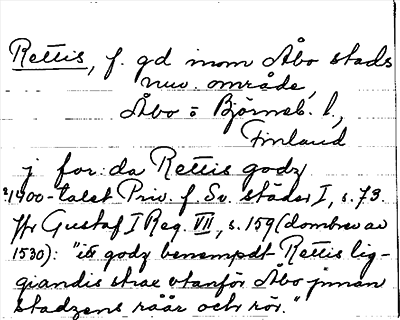 Rettis, f. gd inom Åbo stads
nuv. område,
Åbo o Björneb. l,
Finland
j for:da Rettis godz
1400-talet Priv. f. Sv. städer I, s. 73.
Jfr Gustaf I Reg. VII, s. 159 (dombrev av
1530): "itt godz benempdt Rettis lig-
giandis strax utanför Åbo jnnan
stadzens råår och rör."